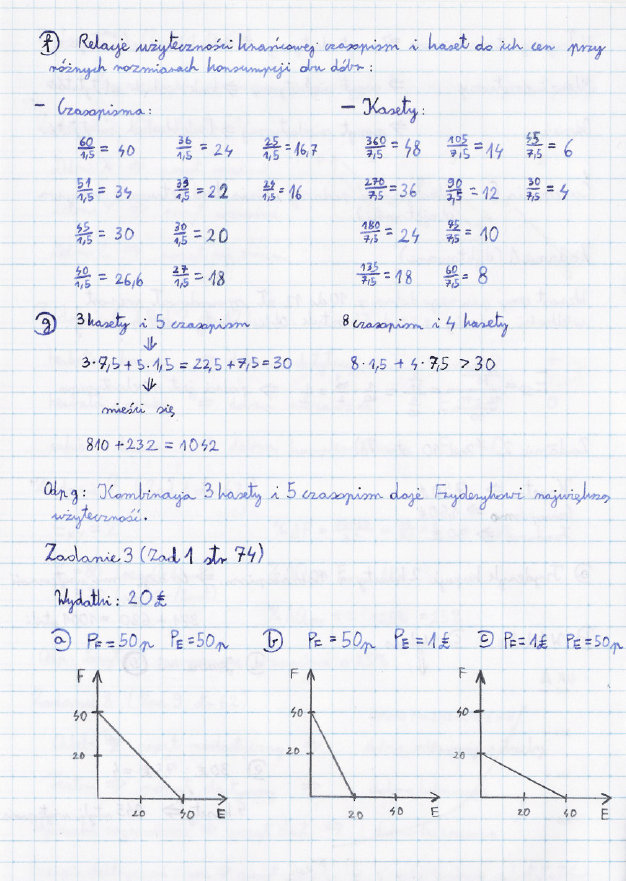 f) Relacje użyteczności krańcowej czasopism i kaset do ich cen przy
różnych rozmiarach konsumpcji obu dóbr:
– Czasopisma: – Kasety:
60/1,5 = 40 36/1,5 = 24 25/1,5 = 16,7 360/7,5 = 48 105/7,5 = 14 45/7,5 = 6
51/1,5 = 34 33/1,5 = 22 24/1,5 = 16 270/7,5 = 36 90/7,5 = 12 30/7,5 = 4
45/1,5 = 30 30/1,5 = 20 180/7,5 = 24 75/7,5 = 10
40/1,5 = 26,6 27/1,5 = 18 135/7,5 = 18 60/7,5 = 8
g) 3 kasety i 5 czasopism 8 czasopism i 4 kasety
⇓
3·7,5 + 5·1,5 = 22,5 + 7,5 = 30 8·1,5 + 4·7,5 > 30
⇓
mieści się
810 + 232 = 1042
Odp g: Kombinacja 3 kasety i 5 czasopism daje Fryderykowi największą
użyteczność.
Zadanie 3 (Zad 1 str 74)
Wydatki: 20£
a) PF = 50p PE = 50p b) PF = 50p PE = 1£ c) PF = 1£ PE = 50p
F F F
40 40 40
20 20 20
20 40 E 20 40 E 20 40 E